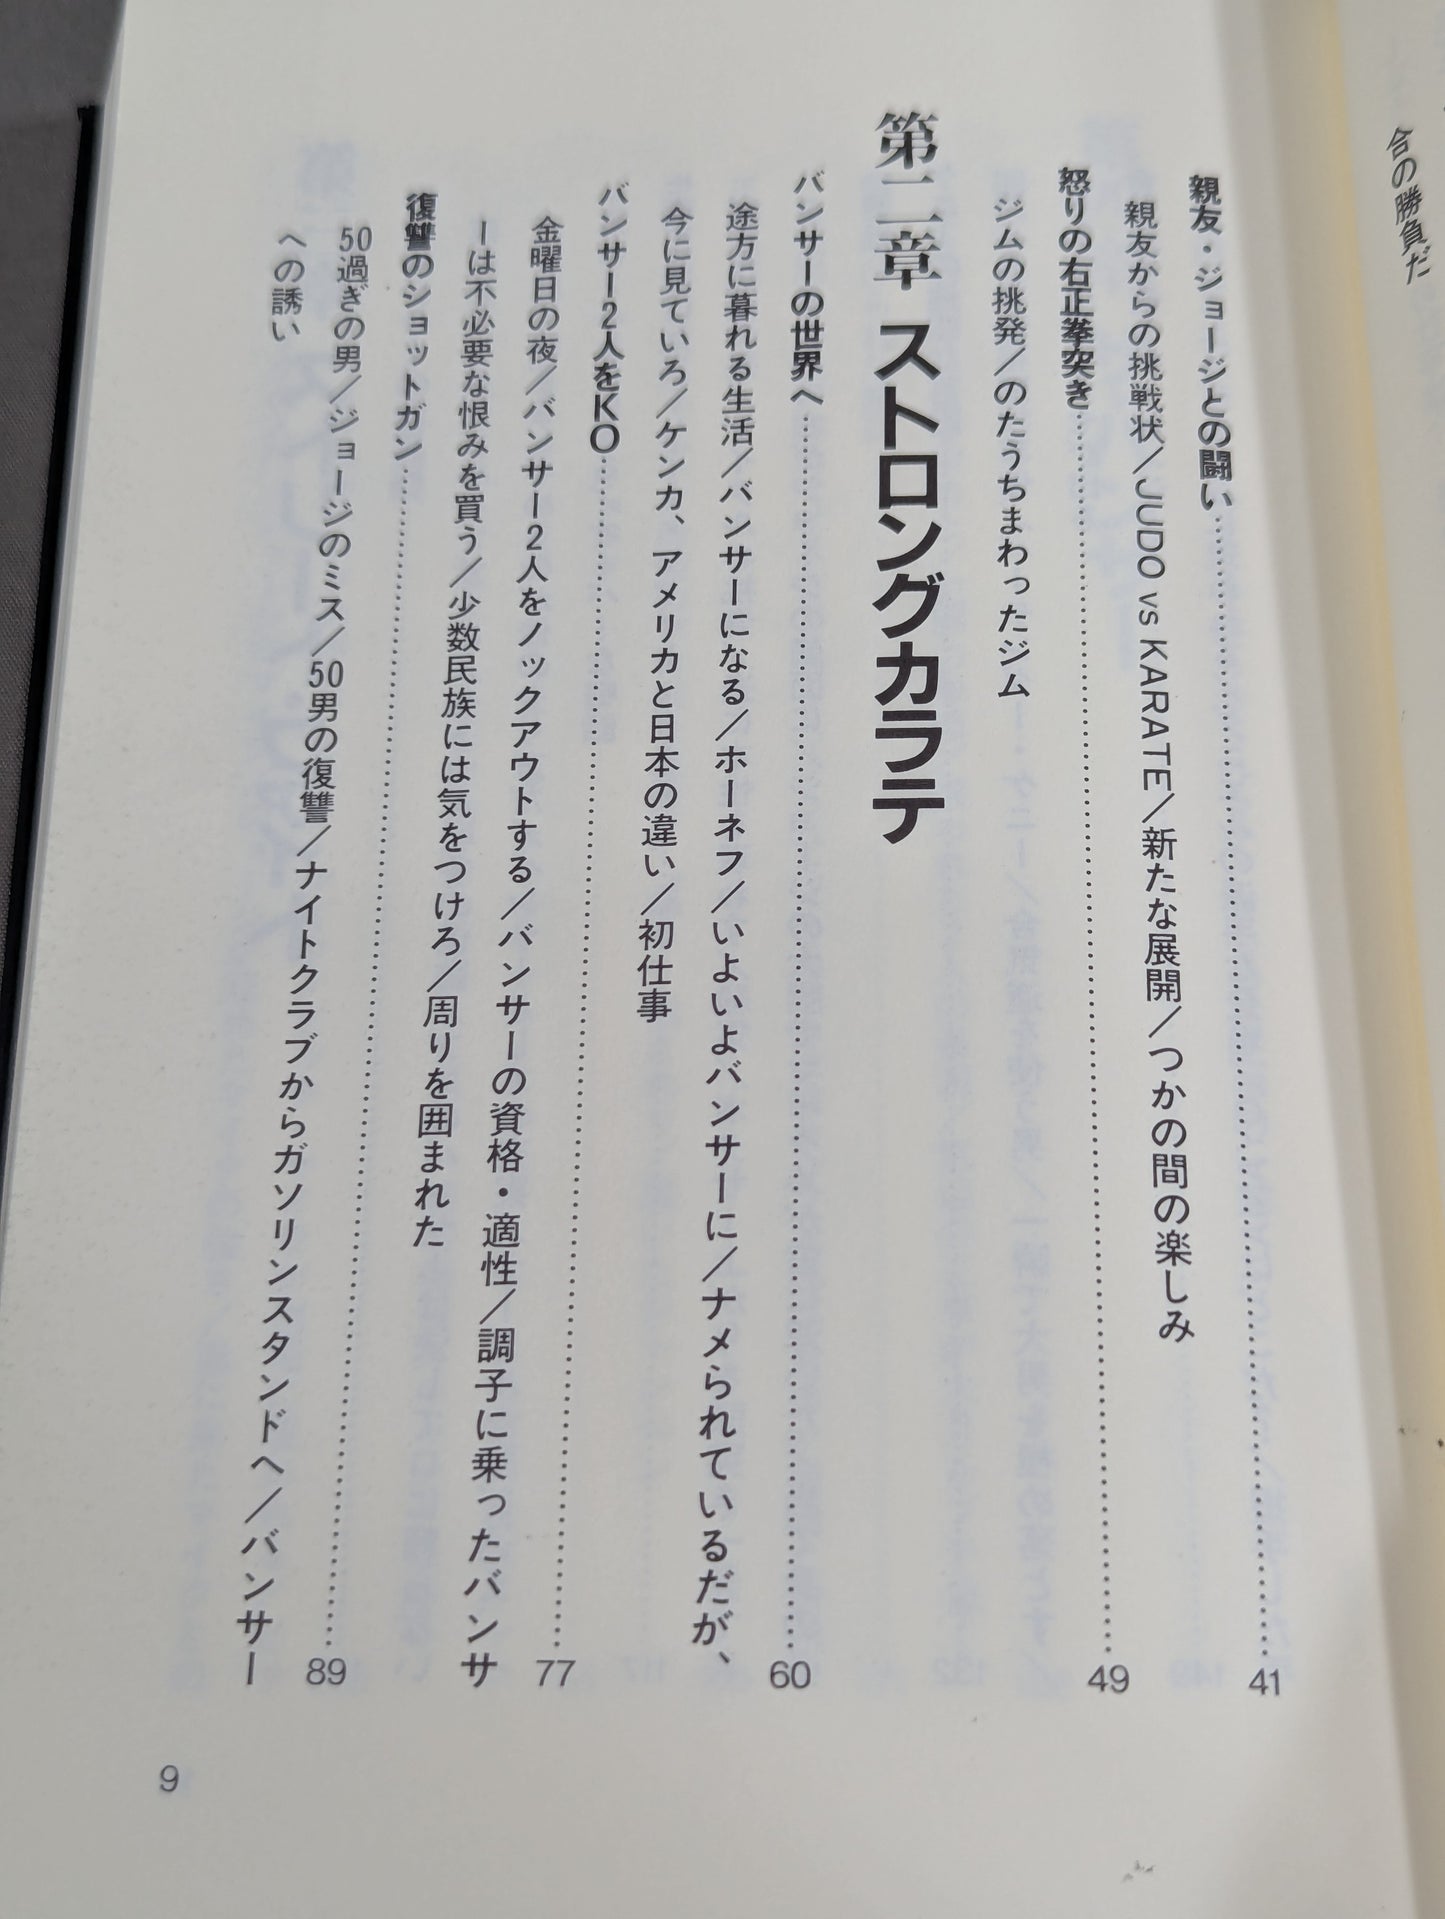 合の勝負だ
親友・ジョージとの闘い……41
親友からの挑戦状／JUDO vs KARATE／新たな展開／つかの間の楽しみ
怒りの右正拳突き……49
ジムの挑発／のたうちまわったジム
第二章 ストロングカラテ
バンサーの世界へ……60
途方に暮れる生活／バンサーになる／ホーネフ／いよいよバンサーに／ナメられているだが、
今に見ていろ／ケンカ、アメリカと日本の違い／初仕事
バンサー2人をKO……77
金曜日の夜／バンサー2人をノックアウトする／バンサーの資格・適性／調子に乗ったバンサ
ーは不必要な恨みを買う／少数民族には気をつけろ／周りを囲まれた
復讐のショットガン……89
50過ぎの男／ジョージのミス／50男の復讐／ナイトクラブからガソリンスタンドへ／バンサー
への誘い
9